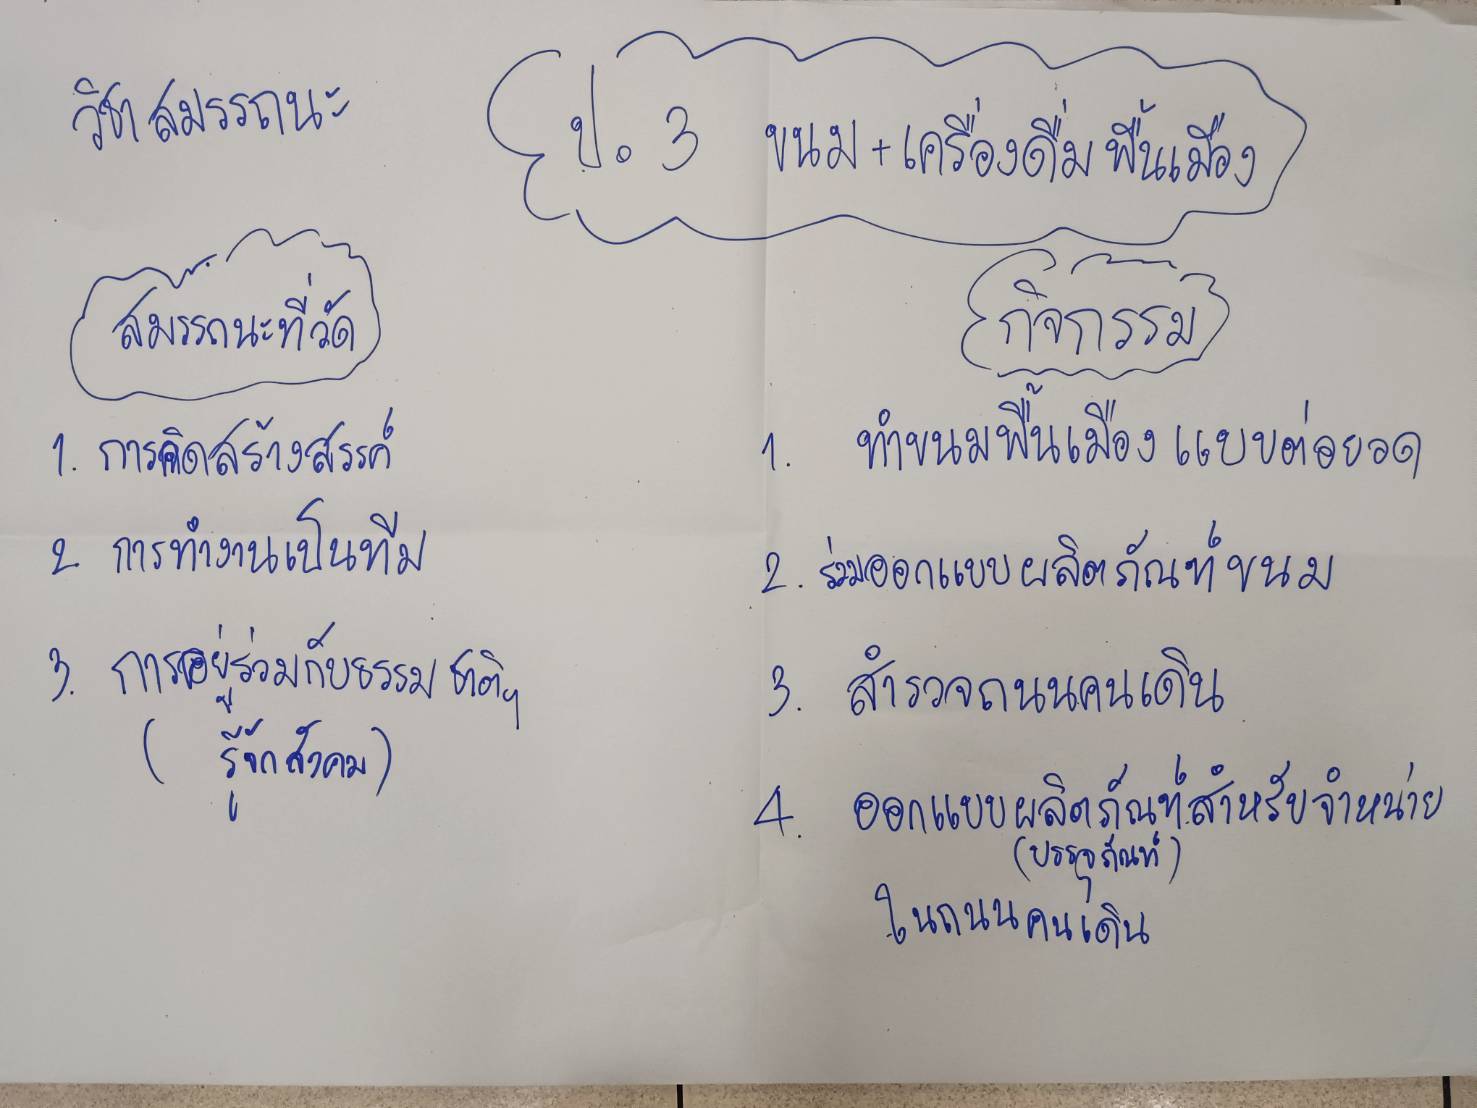 วิชา สมรรถนะ
ป. 3 ขนม + เครื่องดื่ม พื้นเมือง
สมรรถนะที่วัด
1. การคิดสร้างสรรค์
2 การทำงานเป็นทีม
3. การอยู่ร่วมกับธรรมชาติฯ
( รู้จักสังคม )
กิจกรรม
1. ทำขนมพื้นเมือง แบบต่อยอด
2. ร่วมออกแบบผลิตภัณฑ์ขนม
3. สำรวจถนนคนเดิน
4. ออกแบบผลิตภัณฑ์สำหรับจำหน่าย
(บรรจุภัณฑ์)
ในถนนคนเดิน